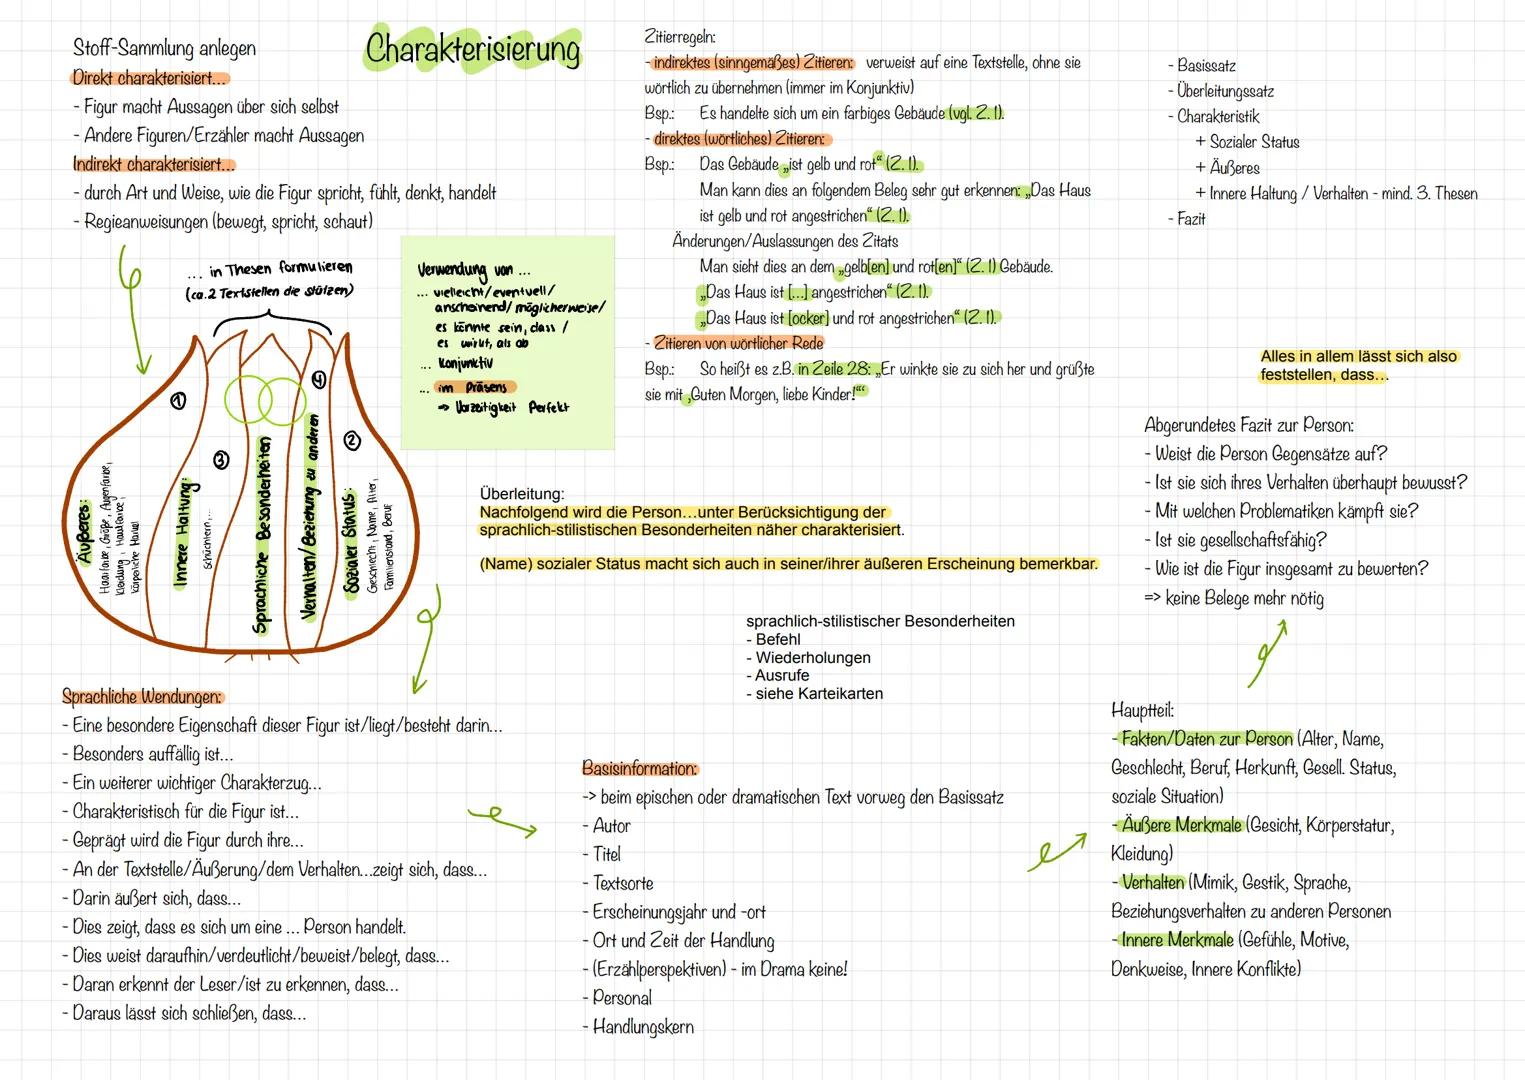 Charakterisierung
Stoff-Sammlung anlegen
Direkt charakterisiert...
- Figur macht Aussagen über sich selbst
- Andere Figuren/Erzähler macht Aussagen
Indirekt charakterisiert...
- durch Art und Weise, wie die Figur spricht, fühlt, denkt, handelt
- Regieanweisungen (bewegt, spricht, schaut)
... in Thesen formulieren
(ca. 2 Textstellen die stützen)
① Äußeres:
Haarfarbe, Größe, Augenfarbe,
Kleidung, Hautfarbe,
körperliche Makel
③ Innere Haltung:
schüchtern,...
Sprachliche Besonderheiten
④ Verhalten/Beziehung zu anderen
② Sozialer Status:
Geschlecht, Name, Alter,
Familienstand, Beruf
Verwendung von ...
... vielleicht/eventuell/
anscheinend/möglicherweise/
es könnte sein, dass /
es wirkt, als ob
... Konjunktiv
... im Präsens
=> Vorzeitigkeit Perfekt
Zitierregeln:
- indirektes (sinngemäßes) Zitieren: verweist auf eine Textstelle, ohne sie
wörtlich zu übernehmen (immer im Konjunktiv)
Bsp.: Es handelte sich um ein farbiges Gebäude (vgl. Z. 1).
- direktes (wörtliches) Zitieren:
Bsp.: Das Gebäude „ist gelb und rot“ (Z. 1).
Man kann dies an folgendem Beleg sehr gut erkennen: „Das Haus
ist gelb und rot angestrichen“ (Z. 1).
Änderungen/Auslassungen des Zitats
Man sieht dies an dem „gelb[en] und rot[en]“ (Z. 1) Gebäude.
„Das Haus ist [...] angestrichen“ (Z. 1).
„Das Haus ist [ocker] und rot angestrichen“ (Z. 1).
- Zitieren von wörtlicher Rede
Bsp.: So heißt es z.B. in Zeile 28: „Er winkte sie zu sich her und grüßte
sie mit ‚Guten Morgen, liebe Kinder!‘“
- Basissatz
- Überleitungssatz
- Charakteristik
+ Sozialer Status
+ Äußeres
+ Innere Haltung / Verhalten - mind. 3. Thesen
- Fazit
Alles in allem lässt sich also
feststellen, dass…
Abgerundetes Fazit zur Person:
- Weist die Person Gegensätze auf?
- Ist sie sich ihres Verhalten überhaupt bewusst?
- Mit welchen Problematiken kämpft sie?
- Ist sie gesellschaftsfähig?
- Wie ist die Figur insgesamt zu bewerten?
=> keine Belege mehr nötig
Überleitung:
Nachfolgend wird die Person…unter Berücksichtigung der
sprachlich-stilistischen Besonderheiten näher charakterisiert.
(Name) sozialer Status macht sich auch in seiner/ihrer äußeren Erscheinung bemerkbar.
sprachlich-stilistischer Besonderheiten
- Befehl
- Wiederholungen
- Ausrufe
- siehe Karteikarten
Sprachliche Wendungen:
- Eine besondere Eigenschaft dieser Figur ist/liegt/besteht darin...
- Besonders auffällig ist...
- Ein weiterer wichtiger Charakterzug...
- Charakteristisch für die Figur ist...
- Geprägt wird die Figur durch ihre...
- An der Textstelle/Äußerung/dem Verhalten...zeigt sich, dass...
- Darin äußert sich, dass...
- Dies zeigt, dass es sich um eine ... Person handelt.
- Dies weist daraufhin/verdeutlicht/beweist/belegt, dass...
- Daran erkennt der Leser/ist zu erkennen, dass...
- Daraus lässt sich schließen, dass...
Basisinformation:
-> beim epischen oder dramatischen Text vorweg den Basissatz
- Autor
- Titel
- Textsorte
- Erscheinungsjahr und -ort
- Ort und Zeit der Handlung
- (Erzählperspektiven) - im Drama keine!
- Personal
- Handlungskern
Hauptteil:
- Fakten/Daten zur Person (Alter, Name,
Geschlecht, Beruf, Herkunft, Gesell. Status,
soziale Situation)
- Äußere Merkmale (Gesicht, Körperstatur,
Kleidung)
- Verhalten (Mimik, Gestik, Sprache,
Beziehungsverhalten zu anderen Personen
- Innere Merkmale (Gefühle, Motive,
Denkweise, Innere Konflikte)